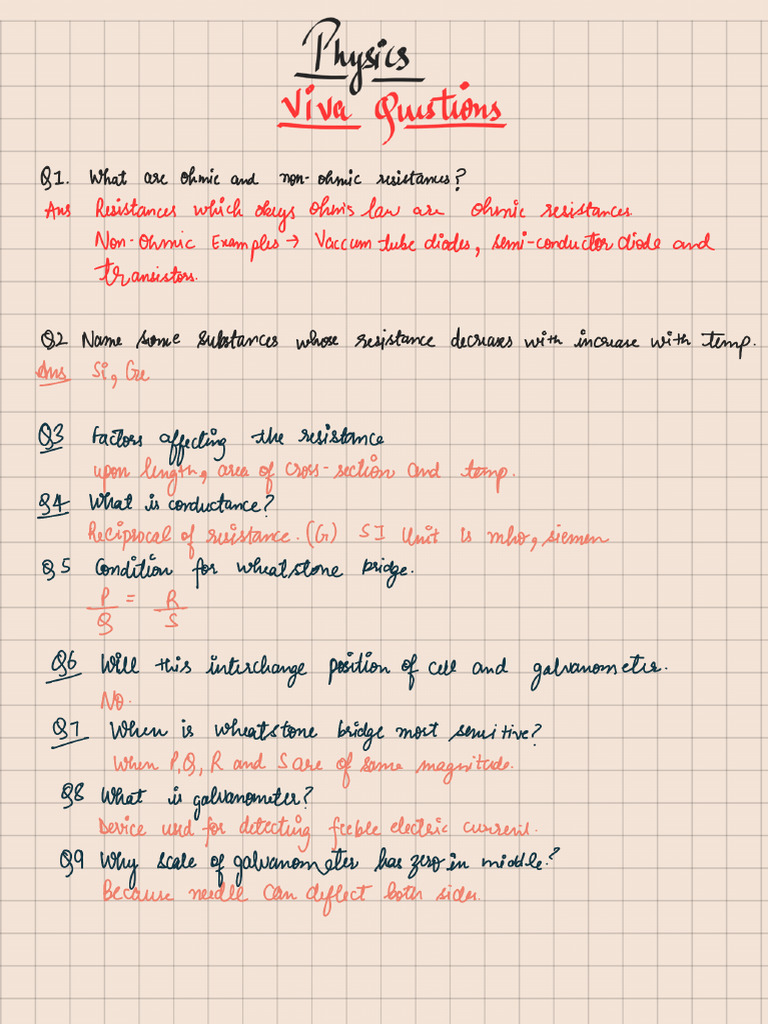 Physics
Viva Questions
Q1. What are ohmic and non-ohmic resistances?
Ans Resistances which obeys ohm's law are ohmic resistances.
Non-Ohmic Examples → Vaccum tube diodes, semi-conductor diode and
transistors.
Q2 Name some substances whose resistance decreases with increase with temp.
Ans Si, Ge
Q3 Factors affecting the resistance
upon length, area of cross-section and temp.
Q4 What is conductance?
Reciprocal of resistance. (G) SI Unit is mho, siemen
Q5 Condition for wheatstone bridge.
P/Q = R/S
Q6 Will this interchange position of cell and galvanometer.
No.
Q7 When is wheatstone bridge most sensitive?
When P,Q, R and S are of same magnitude.
Q8 What is galvanometer?
Device used for detecting feeble electric current.
Q9 Why scale of galvanometer has zero in middle?
Because needle can deflect both sides.